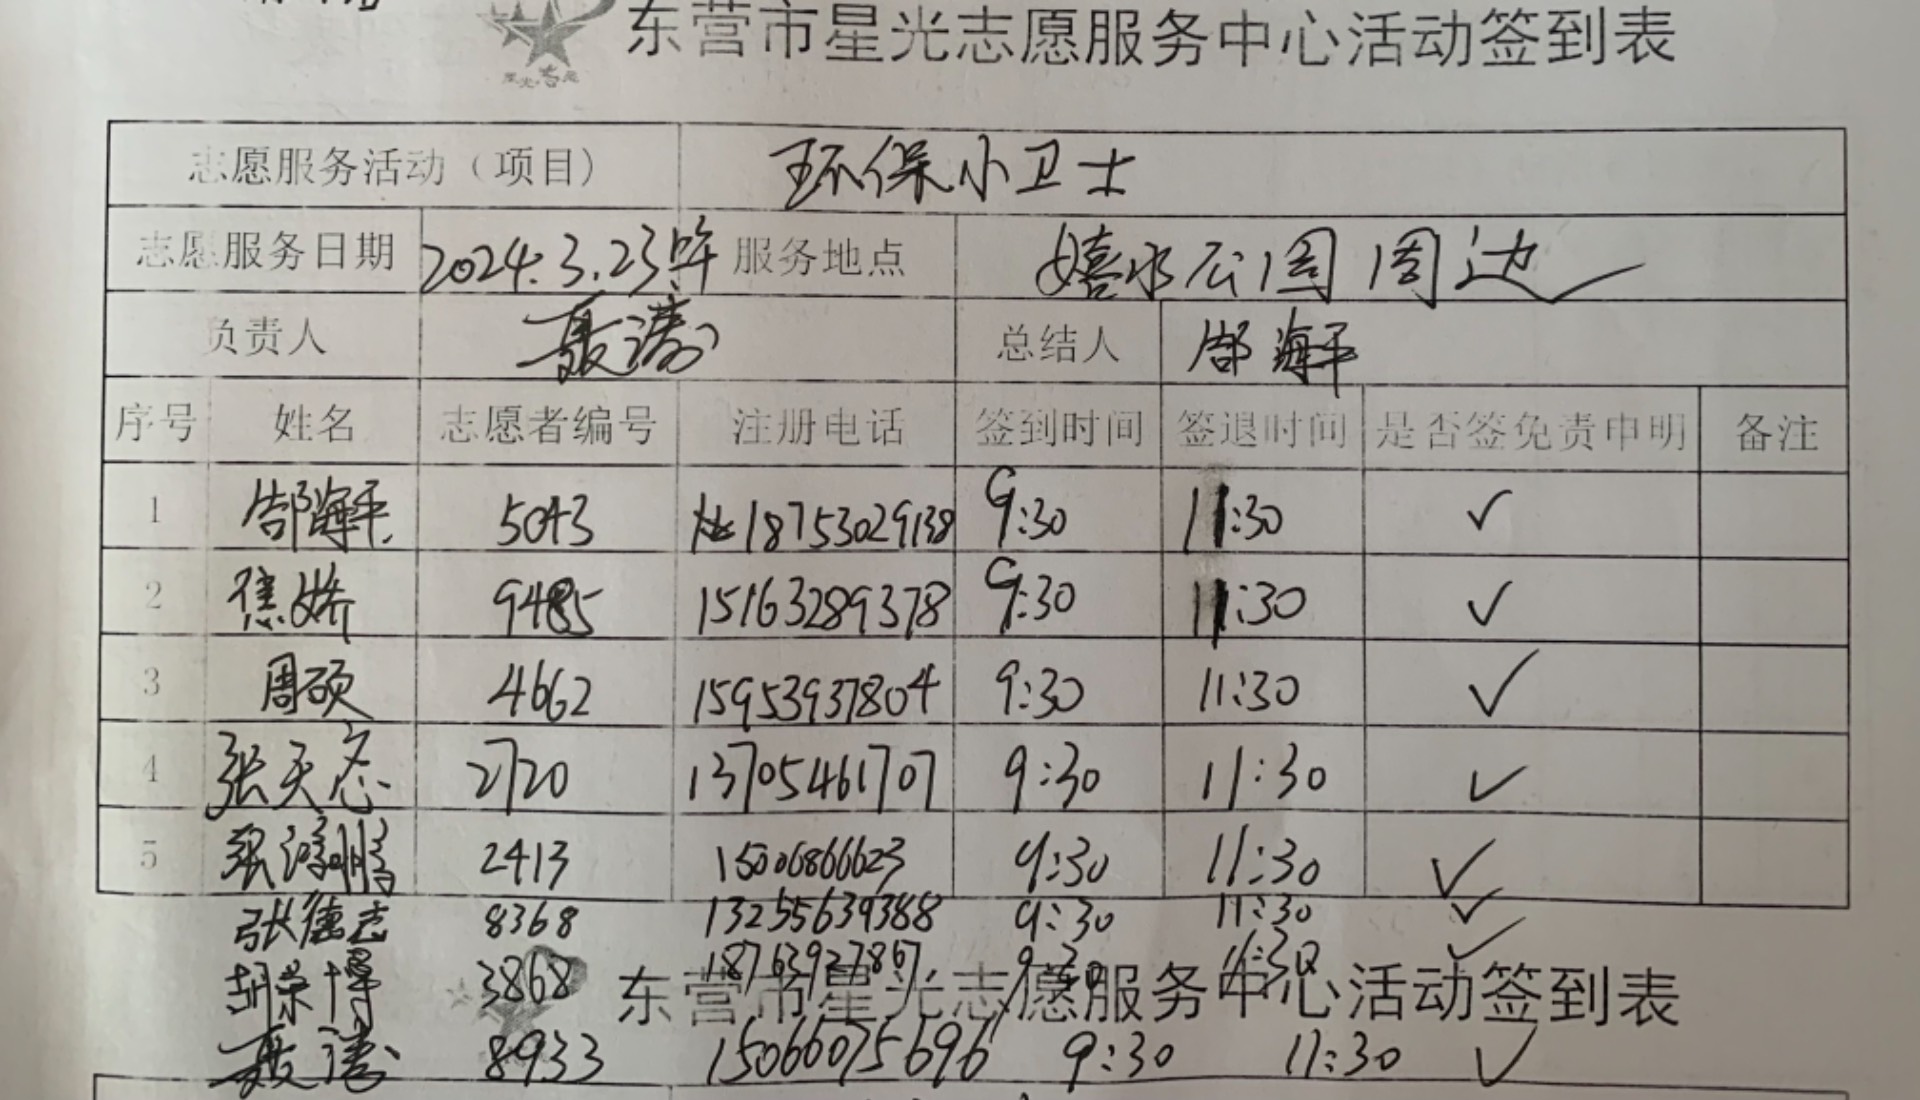 东营市星光志愿服务中心活动签到表
志愿服务活动（项目） 环保小卫士
志愿服务日期 2024.3.23 服务地点 嬉水公园周边
负责人 聂涛 总结人 郜海平
序号 姓名 志愿者编号 注册电话 签到时间 签退时间 是否签免责申明 备注
1 郜海平 5043 18753029138 9:30 11:30 ✓
2 焦娇 9485 15163289378 9:30 11:30 ✓
3 周硕 4662 15953937804 9:30 11:30 ✓
4 张天忞 2720 13705461707 9:30 11:30 ✓
5 张鸿鹏 2413 15006866623 9:30 11:30 ✓
张德志 8368 13255639388 9:30 11:30 ✓
胡荣博 3868 18763927867 9:30 11:30 ✓
东营市星光志愿服务中心活动签到表
聂涛 8933 15066075696 9:30 11:30 ✓